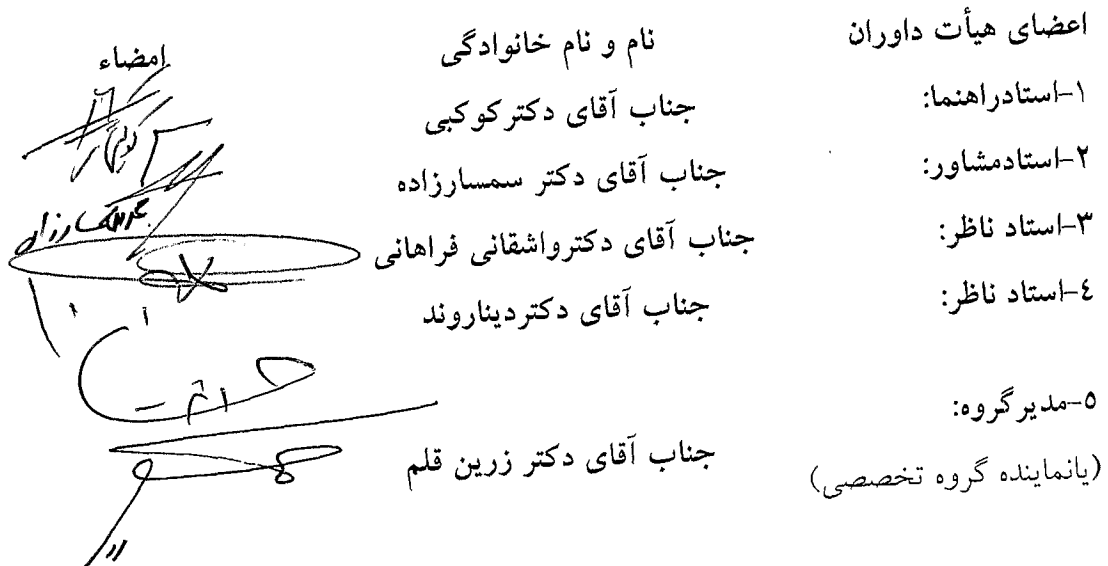 اعضای هیأت داوران نام و نام خانوادگی امضاء
۱-استادراهنما: جناب آقای دکترکوکبی
۲-استادمشاور: جناب آقای دکتر سمسارزاده
۳-استاد ناظر: جناب آقای دکترواشقانی فراهانی
٤-استاد ناظر: جناب آقای دکتردیناروند
٥-مدیرگروه: جناب آقای دکتر زرین قلم
(یانماینده گروه تخصصی)